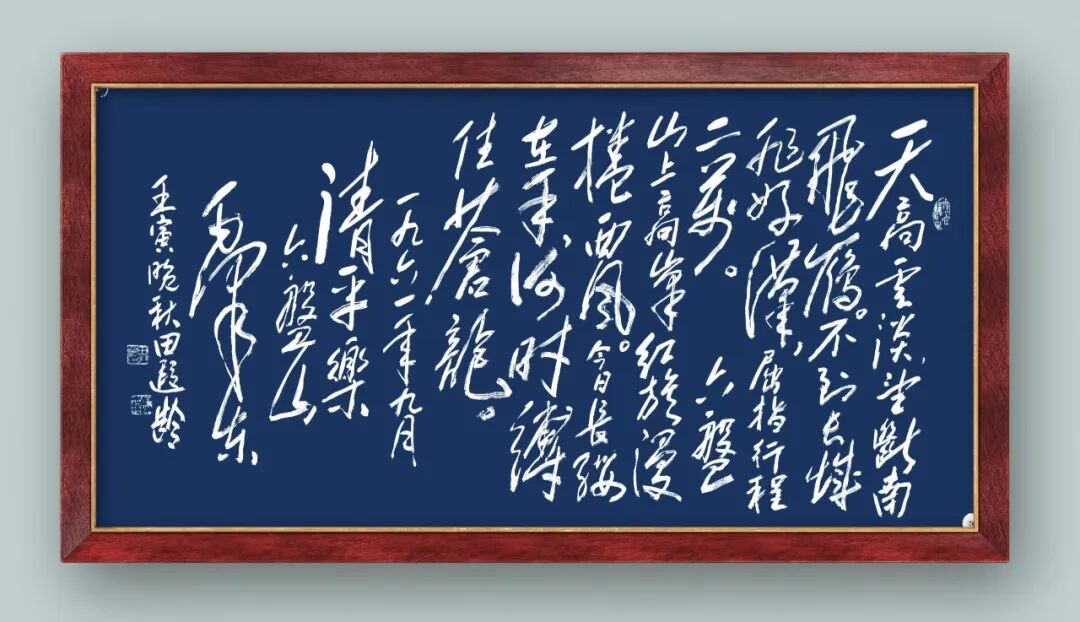 天高雲淡,望斷南
飛鴈。不到長城
非好漢,屈指行程
二萬。 六盤
山上高峯,红旗漫
捲西風。今日長纓
在手,何时縛
住蒼龍。
一九六一年九月
清平樂
六盤山
毛澤东
壬寅晚秋田遐齡